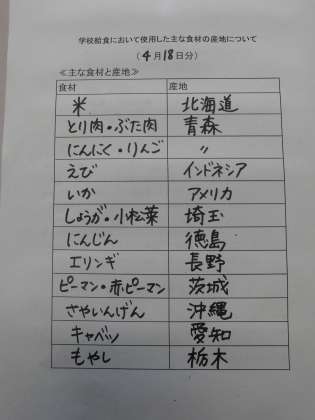 学校給食において使用した主な食材の産地について
(4月18日分)
≪主な食材と産地≫
食材 産地
米 北海道
とり肉・ぶた肉 青森
にんにく・りんご 〃
えび インドネシア
いか アメリカ
しょうが・小松菜 埼玉
にんじん 徳島
エリンギ 長野
ピーマン・赤ピーマン 茨城
さやいんげん 沖縄
キャベツ 愛知
もやし 栃木